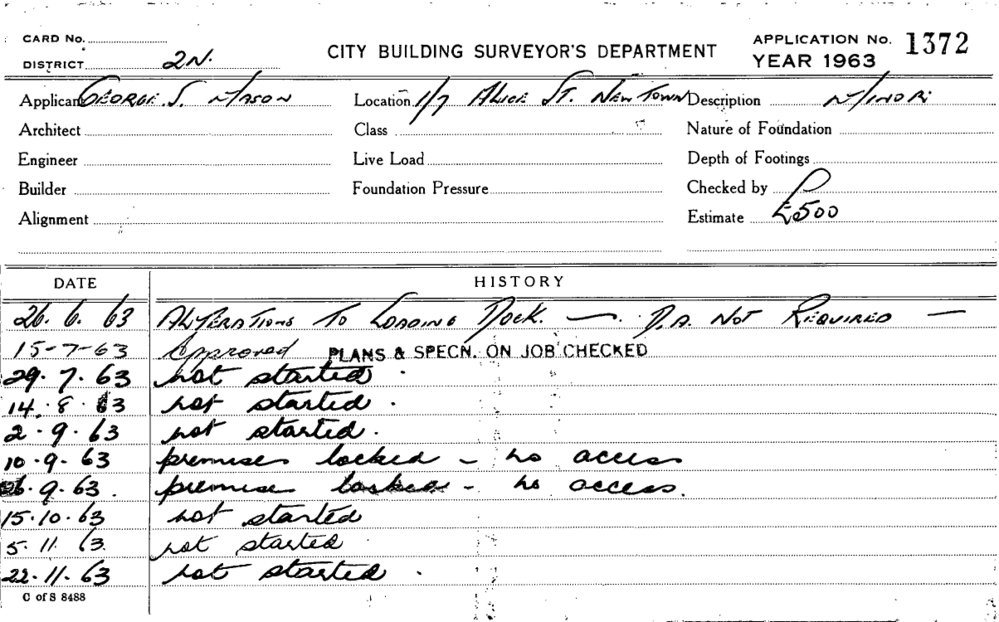 CARD No.
DISTRICT 2N.
CITY BUILDING SURVEYOR'S DEPARTMENT
APPLICATION No. 1372
YEAR 1963
Applicant GEORGE S. MASON Location 1/7 ALICE ST. NEWTOWN Description MINOR
Architect Class Nature of Foundation
Engineer Live Load Depth of Footings
Builder Foundation Pressure Checked by
Alignment Estimate £500
DATE HISTORY
26. 6. 63 ALTERATIONS TO LOADING DOCK. — . D.A. NOT REQUIRED —
15-7-63 Approved PLANS & SPECN. ON JOB CHECKED
29. 7. 63 not started .
14. 8. 63 not started .
2. 9. 63 not started.
10. 9. 63 premises locked - no access
26. 9. 63. premises locked - no access.
15. 10. 63 not started
5. 11. 63. not started
22. 11. 63 not started .
C of S 8488